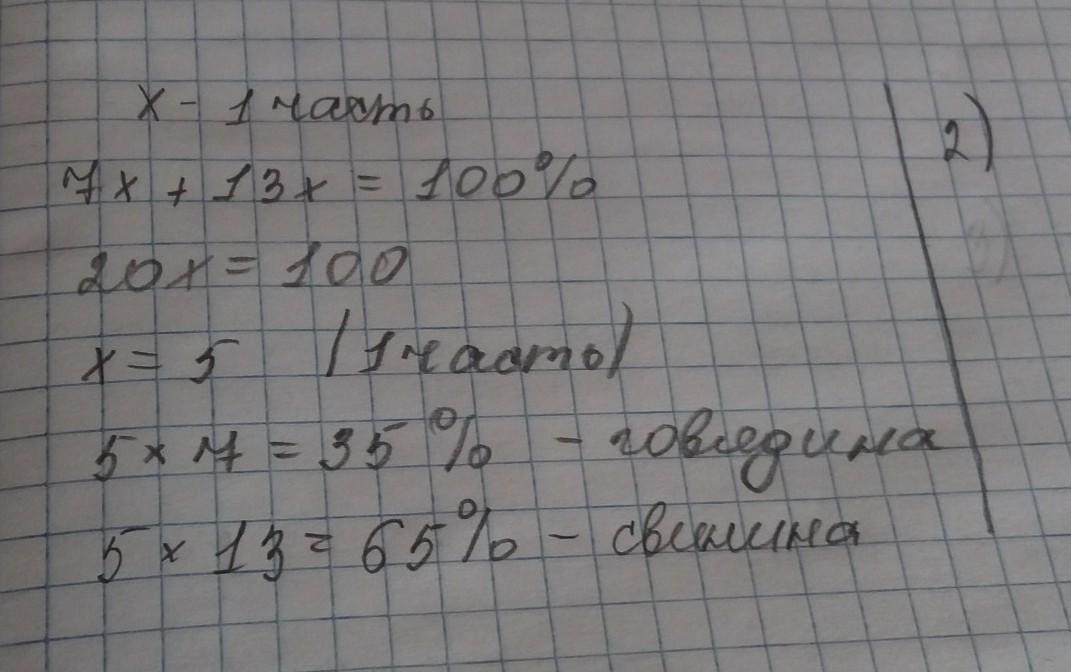 x - 1 часть
7x + 13x = 100%
20x = 100
x = 5 (1 часть)
5 × 7 = 35% - говядина
5 × 13 = 65% - свинина
2)